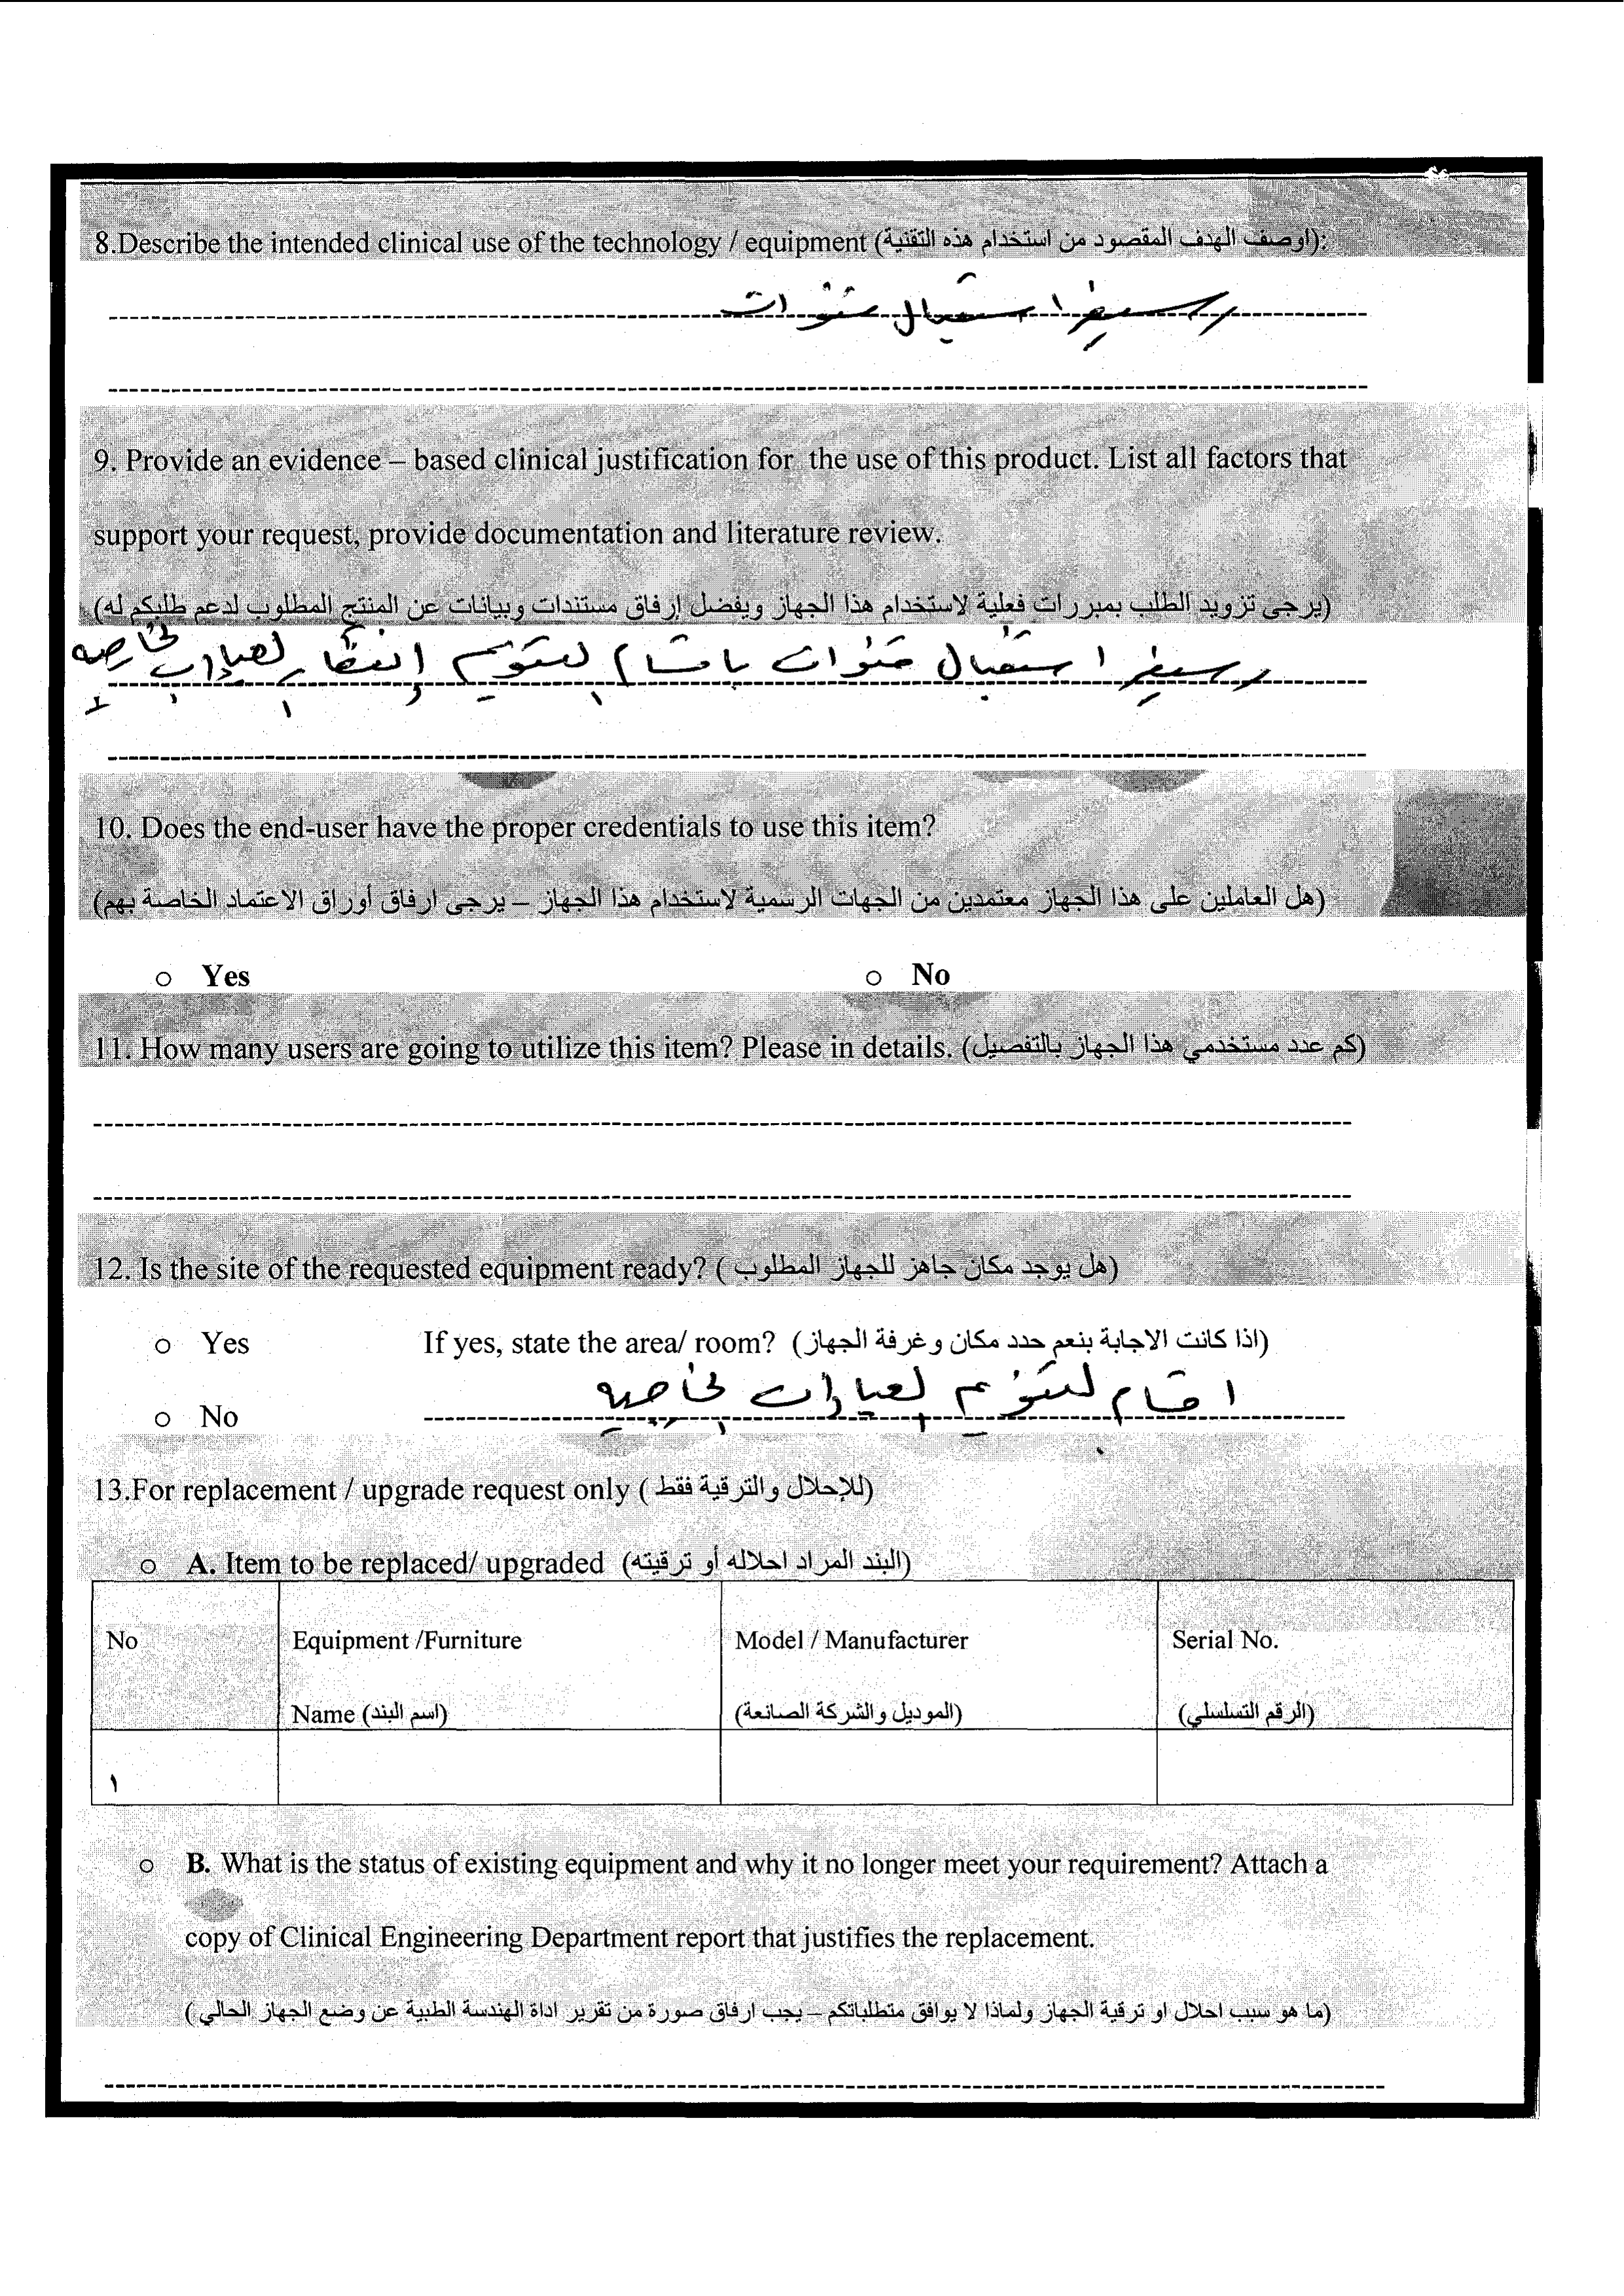 8.Describe the intended clinical use of the technology / equipment (اوصف الهدف المقصود من استخدام هذه التقنية):
رسيفر استقبال قنوات
9. Provide an evidence – based clinical justification for the use of this product. List all factors that
support your request, provide documentation and literature review.
(يرجى تزويد الطلب بمبررات فعلية لاستخدام هذا الجهاز ويفضل إرفاق مستندات وبيانات عن المنتج المطلوب لدعم طلبكم له)
رسيفر استقبال قنوات باقسام التنويم انتظار العيادات الخارجيه
10. Does the end-user have the proper credentials to use this item?
(هل العاملين على هذا الجهاز معتمدين من الجهات الرسمية لاستخدام هذا الجهاز – يرجى ارفاق أوراق الاعتماد الخاصة بهم)
○ Yes ○ No
11. How many users are going to utilize this item? Please in details. (كم عدد مستخدمي هذا الجهاز بالتفصيل)
12. Is the site of the requested equipment ready? ( هل يوجد مكان جاهز للجهاز المطلوب)
○ Yes If yes, state the area/ room? (اذا كانت الاجابة بنعم حدد مكان وغرفة الجهاز)
○ No اقسام التنويم العيادات الخارجيه
13.For replacement / upgrade request only ( للإحلال والترقية فقط)
○ A. Item to be replaced/ upgraded (البند المراد احلاله أو ترقيته)
No Equipment /Furniture Model / Manufacturer Serial No.
Name (اسم البند) (الموديل والشركة الصانعة) (الرقم التسلسلي)
١
○ B. What is the status of existing equipment and why it no longer meet your requirement? Attach a
copy of Clinical Engineering Department report that justifies the replacement.
(ما هو سبب احلال او ترقية الجهاز ولماذا لا يوافق متطلباتكم – يجب ارفاق صورة من تقرير اداة الهندسة الطبية عن وضع الجهاز الحالي )